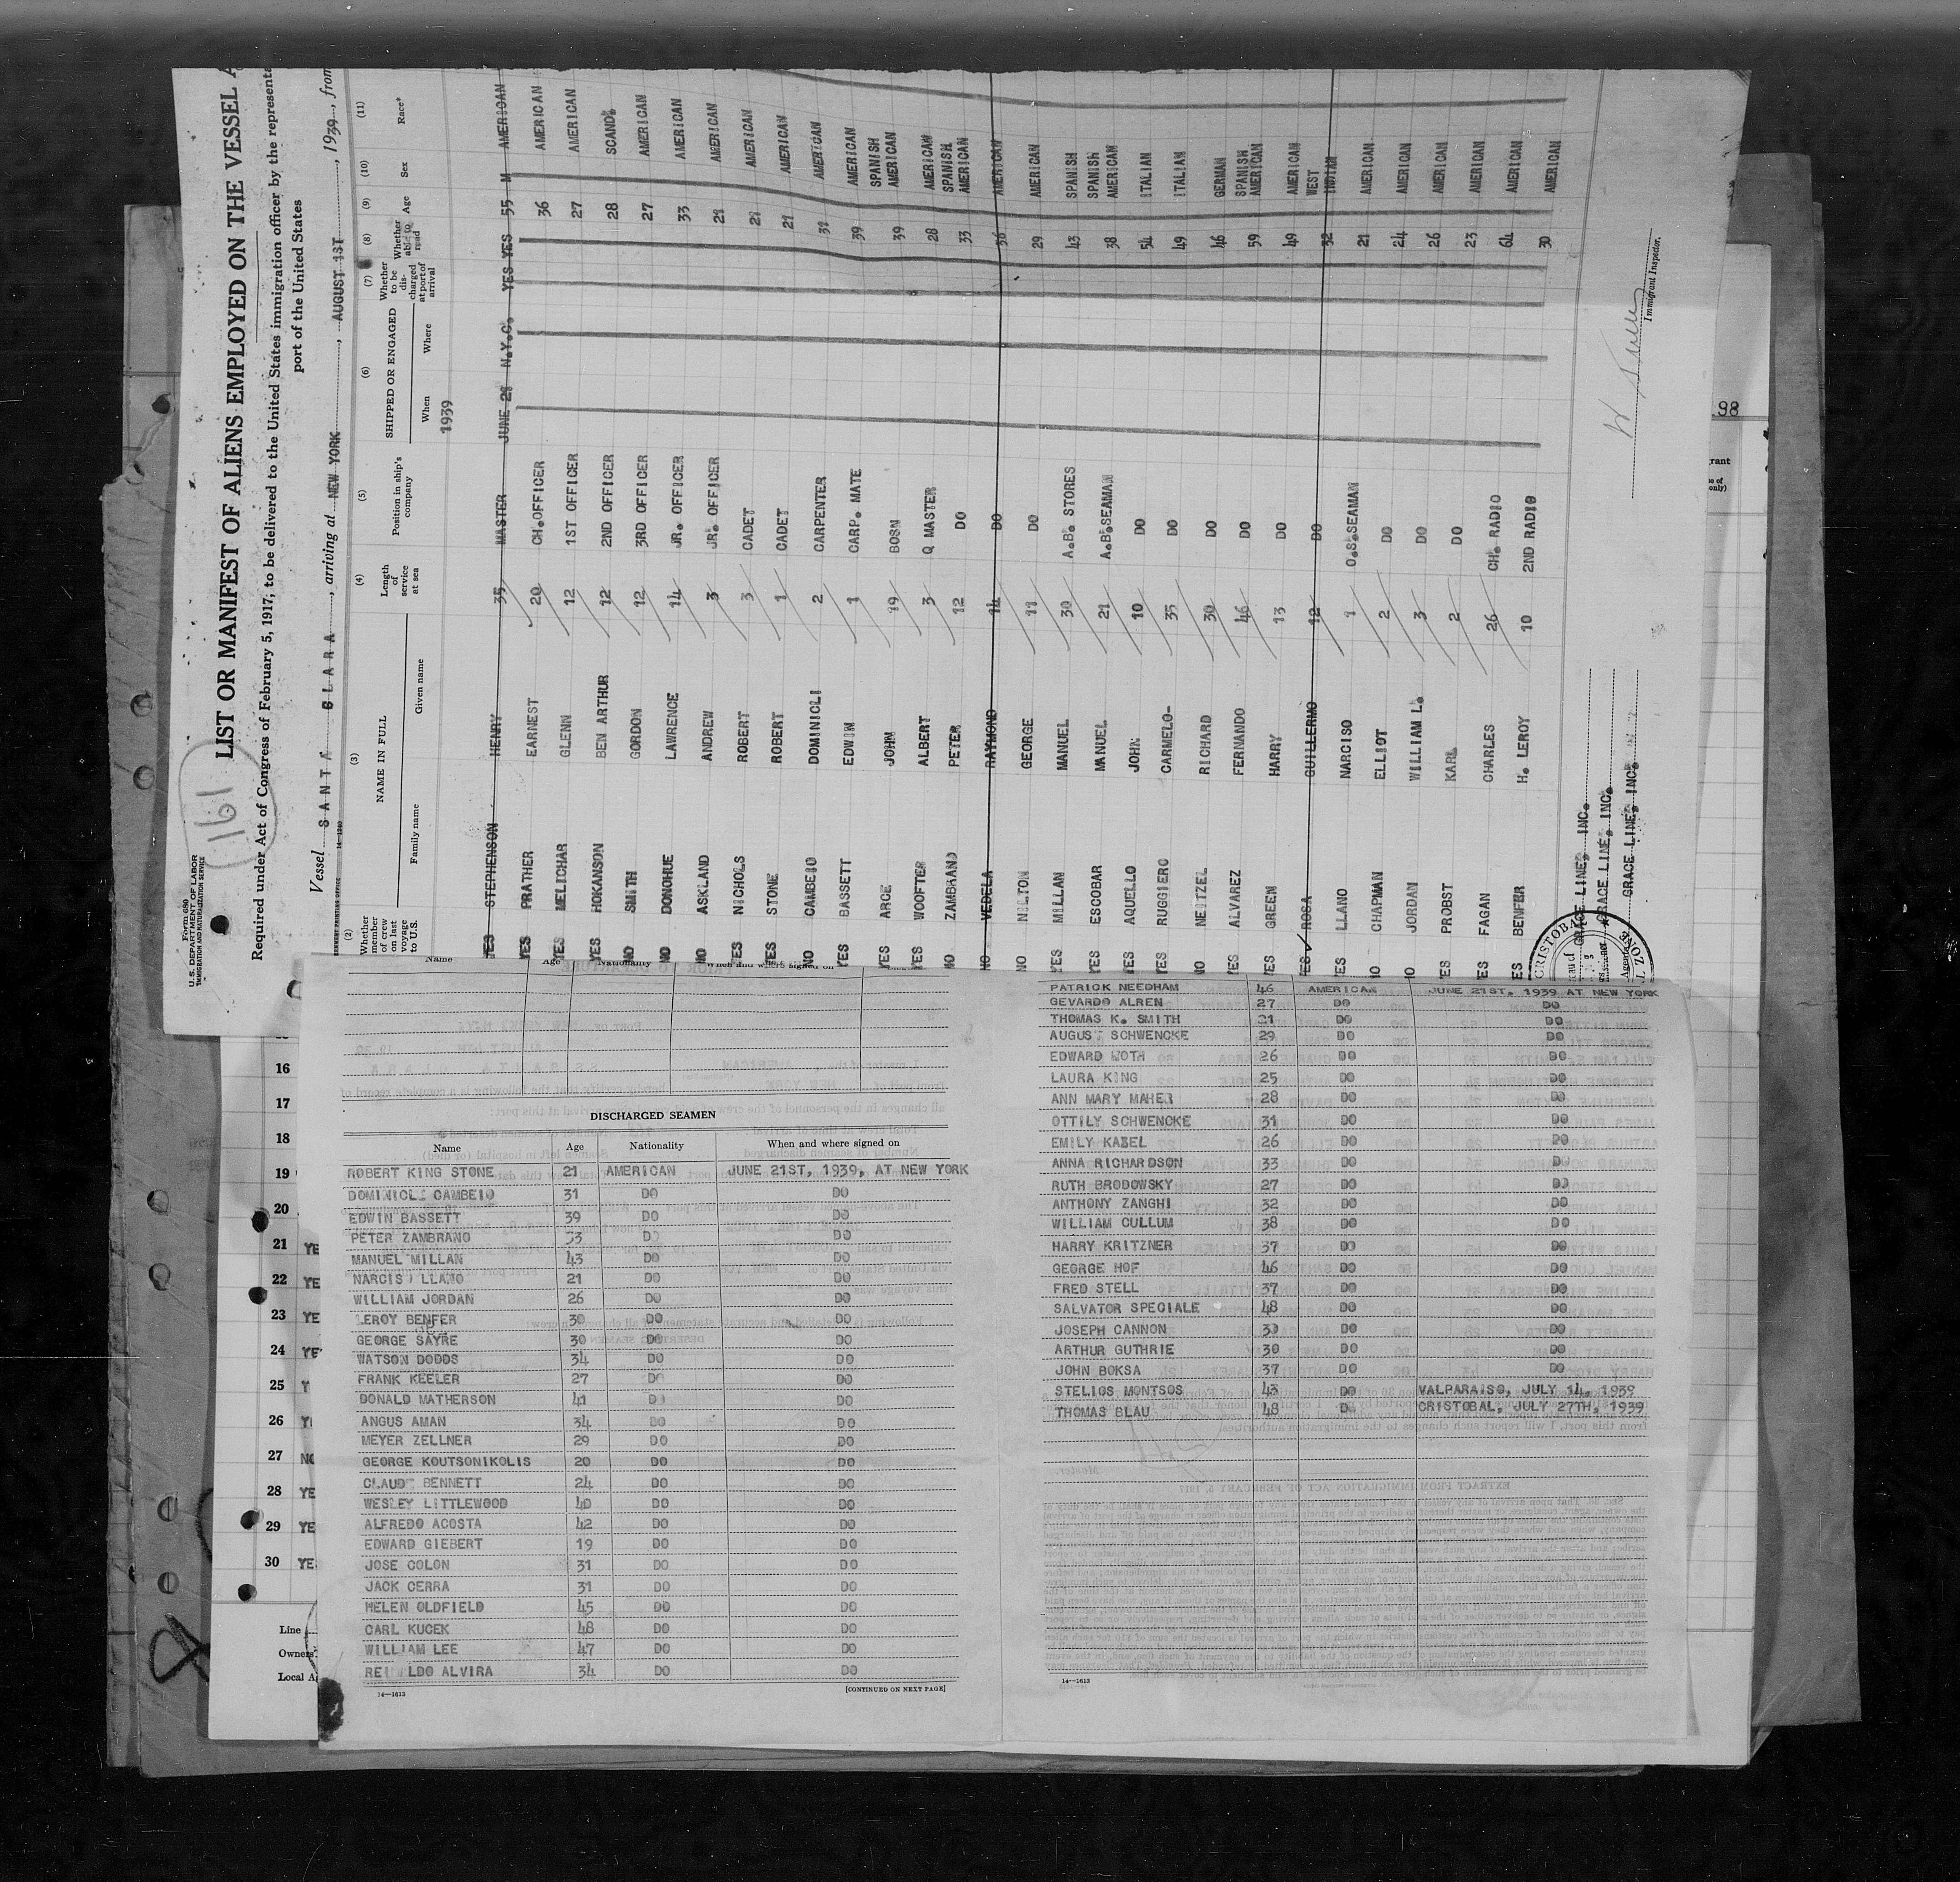 Form 680
U.S. DEPARTMENT OF LABOR
IMMIGRATION AND NATURALIZATION SERVICE
161
LIST OR MANIFEST OF ALIENS EMPLOYED ON THE VESSEL
Required under Act of Congress of February 5, 1917, to be delivered to the United States immigration officer by the
port of the United States
Vessel SANTA CLARA, arriving at NEW YORK, AUGUST 1ST, 1939, from
(2) (3) (4) (5) (6) (7) (8) (9) (10) (11)
Whether member of crew on last voyage to U.S. NAME IN FULL Family name Given name Length of service at sea Position in ship's company SHIPPED OR ENGAGED When Where Whether to be discharged at port of arrival Whether able to read Age Sex Race*
1939
YES STEPHENSON HENRY 35 MASTER JUNE 21 N.Y.C. YES YES 55 M AMERICAN
YES PRATHER EARNEST 20 CH.OFFICER 36 AMERICAN
YES MELICHAR GLENN 12 1ST OFFICER 27 AMERICAN
YES HOKANSON BEN ARTHUR 12 2ND OFFICER 28 SCAND.
NO SMITH GORDON 12 3RD OFFICER 27 AMERICAN
NO DONOHUE LAWRENCE 14 JR. OFFICER 33 AMERICAN
NO ASKLAND ANDREW 3 JR. OFFICER 21 AMERICAN
YES NICHOLS ROBERT 3 CADET 21 AMERICAN
YES STONE ROBERT 1 CADET 21 AMERICAN
NO CAMBEIO DOMINICLI 2 CARPENTER 31 AMERICAN
YES BASSETT EDWIN 1 CARP. MATE 39 AMERICAN
YES ARCE JOHN 19 BOSN 39 SPANISH AMERICAN
YES WOOFTER ALBERT 3 Q MASTER 28 AMERICAN
NO ZAMBRANO PETER 12 DO 33 SPANISH AMERICAN
NO VEDELA RAYMOND 14 DO 36 AMERICAN
NO NILTON GEORGE 11 DO 29 AMERICAN
YES MILLAN MANUEL 30 A.B. STORES 43 SPANISH
YES ESCOBAR MANUEL 21 A.B.SEAMAN 38 SPANISH AMERICAN
YES AQUELLO JOHN 10 DO 54 ITALIAN
YES RUGGIERO CARMELO- 35 DO 49 ITALIAN
NO NEITZEL RICHARD 30 DO 46 GERMAN
YES ALVAREZ FERNANDO 46 DO 59 SPANISH AMERICAN
YES GREEN HARRY 13 DO 49 AMERICAN
YES ROSA GUILLERMO 12 DO 32 WEST INDIAN
YES LLANO NARCISO 1 O.S.SEAMAN 21 AMERICAN
NO CHAPMAN ELLIOT 2 DO 24 AMERICAN
NO JORDAN WILLIAM L. 3 DO 26 AMERICAN
YES PROBST KARL 2 DO 23 AMERICAN
YES FAGAN CHARLES 26 CH. RADIO 64 AMERICAN
YES BENFER H. LEROY 10 2ND RADIO 30 AMERICAN
GRACE LINE, INC.
GRACE LINE, INC.
GRACE LINE, INC.
CRISTOBAL
Immigrant Inspector.
98
16
17
18
19
20
21 YE
22 YE
23 YE
24 YE
25 Y
26 Y
27 NO
28 YE
29 YE
30 YE
Line
Owners
Local
DISCHARGED SEAMEN
Name Age Nationality When and where signed on
ROBERT KING STONE 21 AMERICAN JUNE 21ST, 1939, AT NEW YORK
DOMINICLI CAMBEIO 31 DO DO
EDWIN BASSETT 39 DO DO
PETER ZAMBRANO 33 DO DO
MANUEL MILLAN 43 DO DO
NARCISO LLANO 21 DO DO
WILLIAM JORDAN 26 DO DO
LEROY BENFER 30 DO DO
GEORGE SAYRE 30 DO DO
WATSON DODDS 34 DO DO
FRANK KEELER 27 DO DO
DONALD MATHERSON 41 DO DO
ANGUS AMAN 34 DO DO
MEYER ZELLNER 29 DO DO
GEORGE KOUTSONIKOLIS 20 DO DO
CLAUDE BENNETT 24 DO DO
WESLEY LITTLEWOOD 40 DO DO
ALFREDO ACOSTA 42 DO DO
EDWARD GIEBERT 19 DO DO
JOSE COLON 31 DO DO
JACK CERRA 31 DO DO
HELEN OLDFIELD 45 DO DO
CARL KUCEK 48 DO DO
WILLIAM LEE 47 DO DO
ALVIRA 34 DO DO
14—1613 [CONTINUED ON NEXT PAGE]
PATRICK NEEDHAM 46 AMERICAN JUNE 21ST, 1939 AT NEW YORK
GEVARDO ALREN 27 DO DO
THOMAS K. SMITH 21 DO DO
AUGUST SCHWENCKE 29 DO DO
EDWARD 26 DO DO
LAURA KING 25 DO DO
ANN MARY MAHER 28 DO DO
OTTILY SCHWENCKE 31 DO DO
EMILY KABEL 26 DO DO
ANNA RICHARDSON 33 DO DO
RUTH BRODOWSKY 27 DO DO
ANTHONY ZANGHI 32 DO DO
WILLIAM CULLUM 38 DO DO
HARRY KRITZNER 37 DO DO
GEORGE HOF 46 DO DO
FRED STELL 37 DO DO
SALVATOR SPECIALE 48 DO DO
JOSEPH CANNON 30 DO DO
ARTHUR GUTHRIE 30 DO DO
JOHN BOKSA 37 DO DO
STELIOS MONTSOS 43 DO VALPARAISO, JULY 14, 1939
THOMAS BLAU 48 DO CRISTOBAL, JULY 27TH, 1939
14—1613